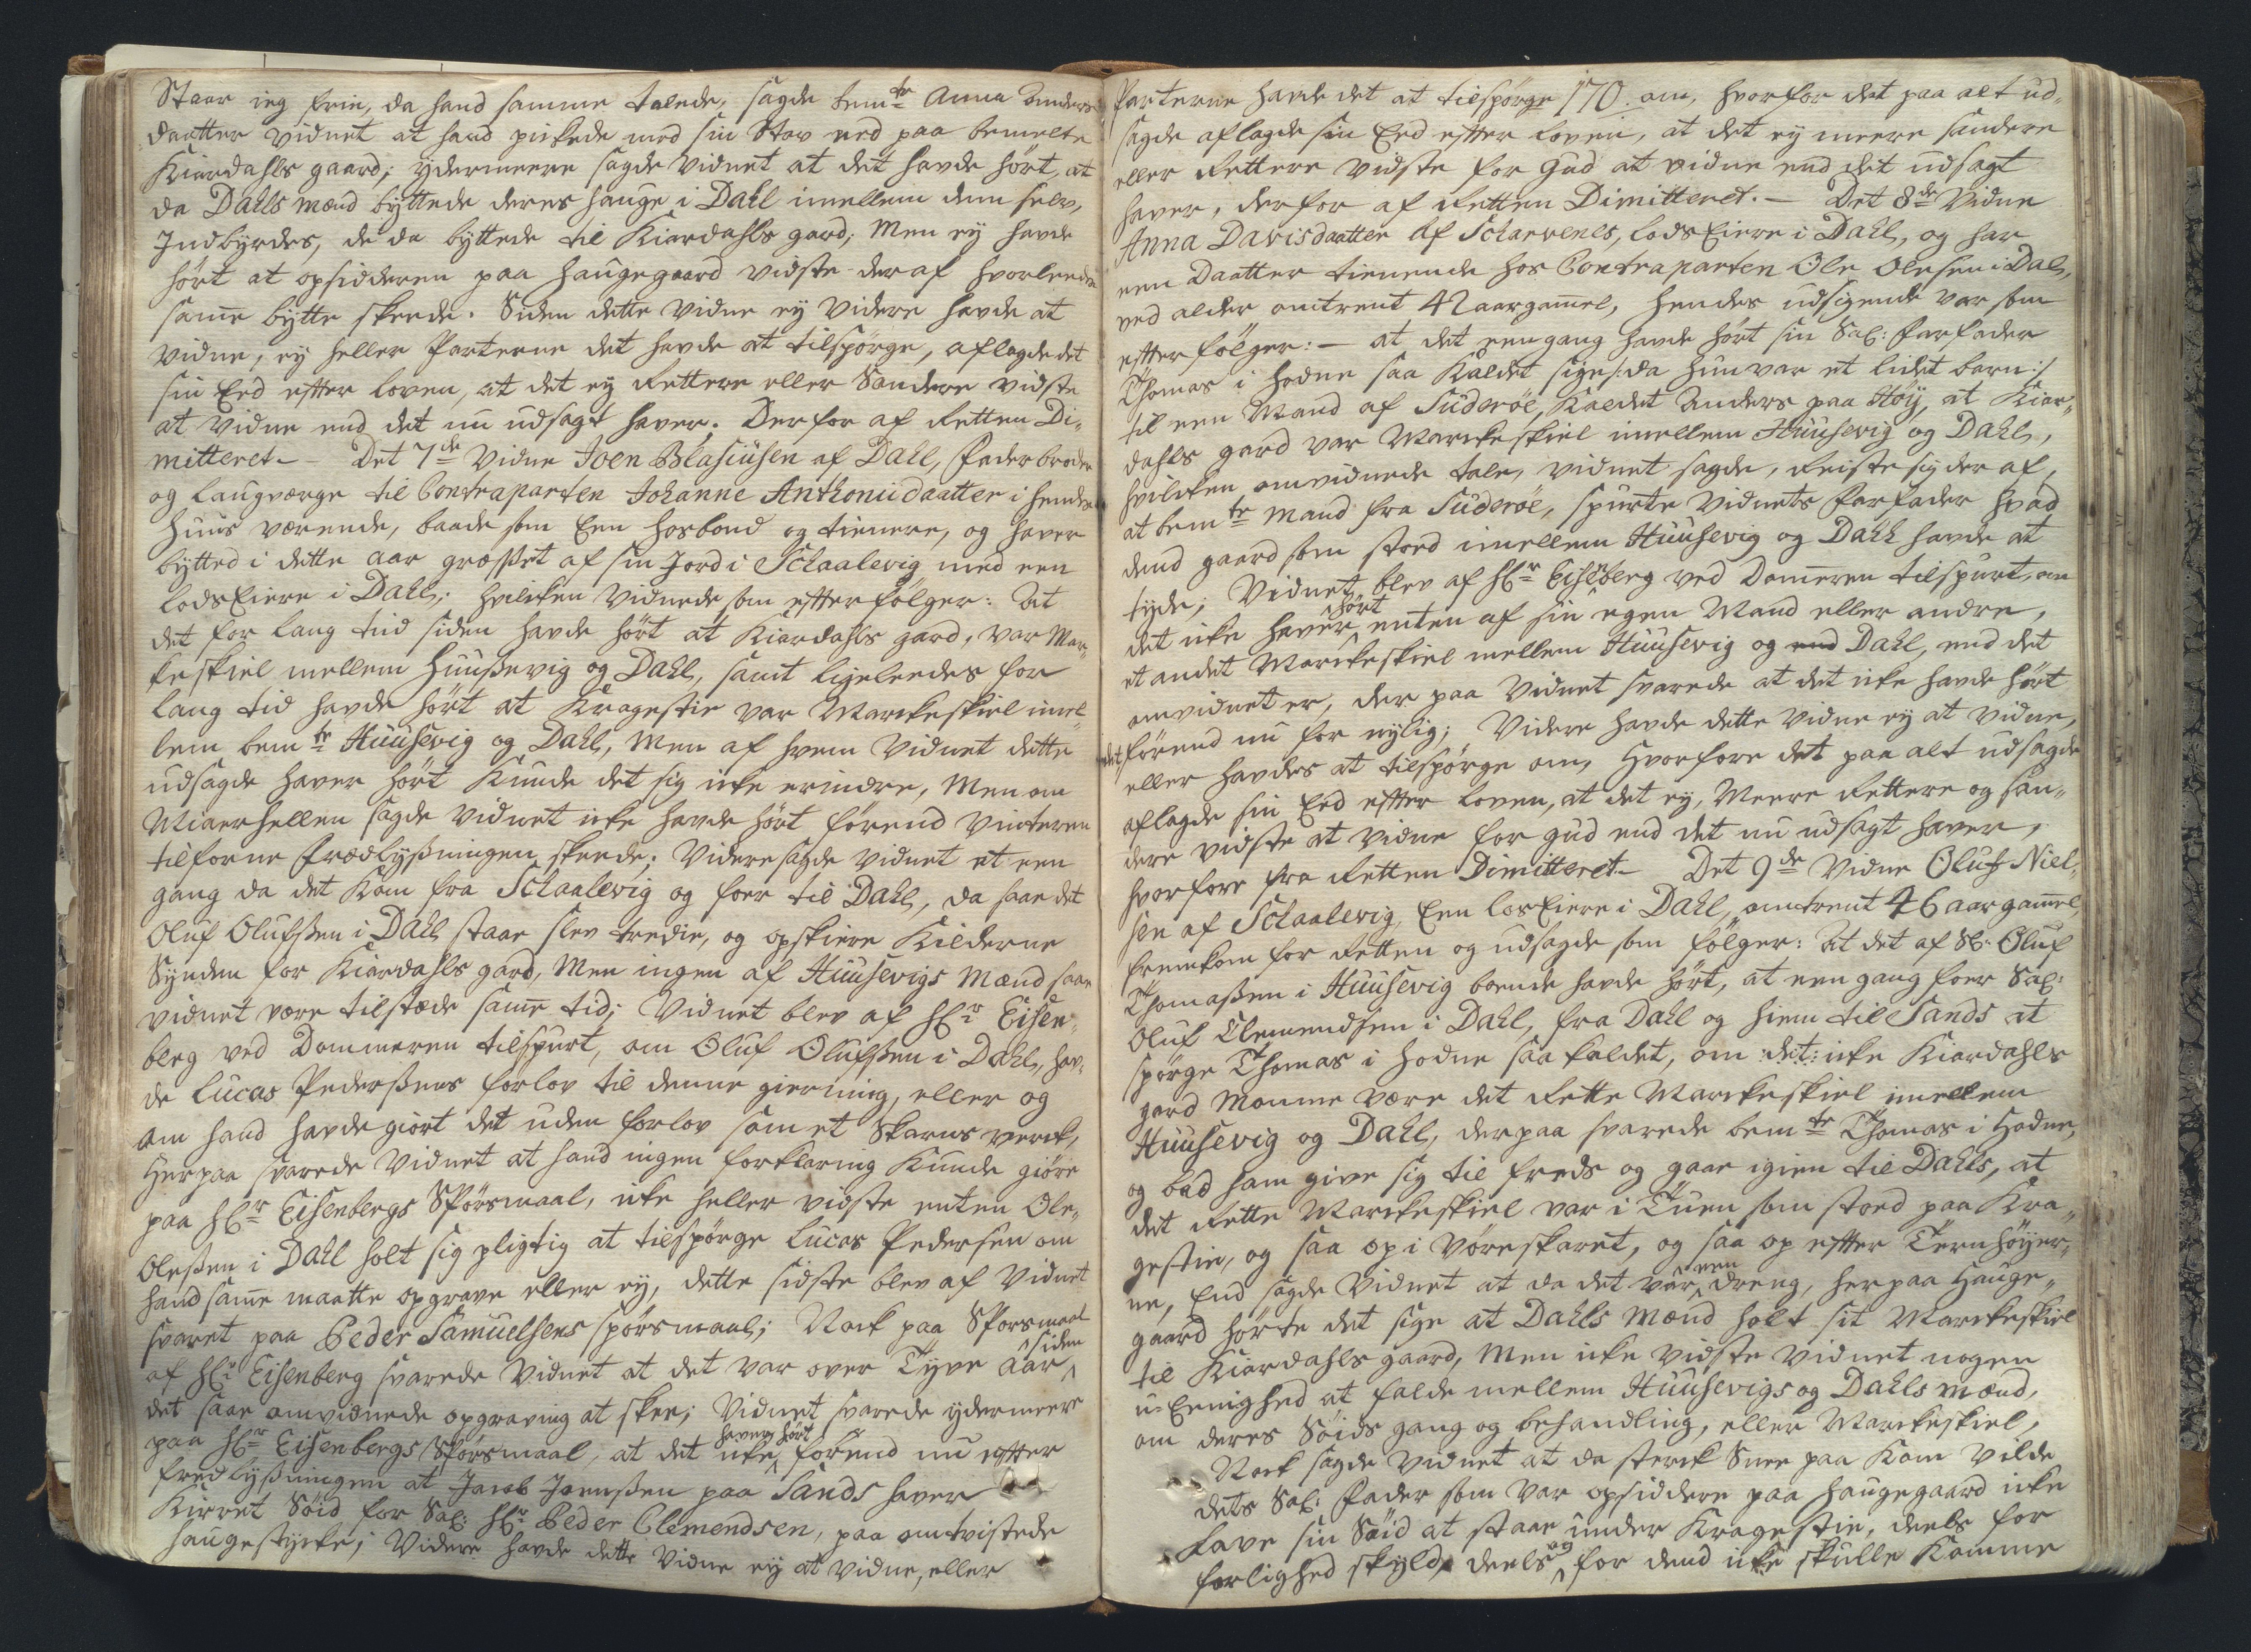 Staar ieg frie, da hand samme talede, sagde bemte Anna Anders
daatter vidnet at hand pickede med sin Stav ned paa bemelte
Kiardahls gaard; ydermeere sagde vidnet at det havde hört, at
da Dahls mænd byttede deres hauge i Dahl imellem dem selv,
Indbyrdes, de da byttede til Kiardahls gard; Men ey havde
hört at opsidderen paa haugegaard vidste deraf hvorleedes
same bytte skeede. Siden dette vidne ey videre havde at
vidne, ey heller Parterne det havde at tilspörge, aflagde det
sin Eed efter loven, at det ey Rettere eller Sandere vidste
at vidne end det nu udsagt haver. Derfor af Retten Di-
mitteret. Det 7de Vidne Joen Blasiusen af Dahl, Faderbroder
og laugværge til Contraparten Johanne Anthoniidaatter i hendes
huus værende, baade som Een hosbond og tienere, og haver
bytted i dette aar græsset af sin Jord i Schaalevig med een
lodsEiere i Dahl; hvilcken vidnede som efterfölger: At
det for lang tiid siden havde hört at Kiardahls gard, var Mar-
keskiel mellem Huusevig og Dahl, samt ligeleedes for
lang tid havde hört at Kragestie var Marckeskiel imel-
lem bemte Huusevig og Dahl, Men af hvem vidnet dette
udsagde haver hört kunde det sig icke erindre, Men om
Miaerhellen sagde vidnet icke havde hört förend vinteren
tilforne Fredlysningen skeede; Videre sagde vidnet at een
gang da det kom fra Schaalevig og foer til Dahl, da saae det
Oluf Olufsen i Dahl staae slev tredie, og opskiere Kilderne
Synden for Kiardahls gard, Men ingen af Huusevigs mænd saae
vidnet være tilstæde same tid; Vidnet blev af Hr Eisen-
berg ved Dommeren tilspurt, om Oluf Olufsen i Dahl, hav-
de Lucas Pedersens forlov til denne gierning, eller og
om hand havde giort det uden forlov som et Skarns verck,
Herpaa svarede vidnet at hand ingen forklaring kunde giöre
paa Hr Eisenbergs Spörsmaal, icke heller vidste enten Ole
Olesen i Dahl holt sig pligtig at tilspörge Lucas Pedersen om
hand same maatte opgrave eller ey, dette sidste blev af vidnet
svaret paa Peder Samuelsens spörsmaal; Nock paa Spörsmaal
af Hr Eisenberg svarede vidnet at det var over Tyve aar siden
det saae omvidnede opgraving at skee; Vidnet svarede ydermeere
paa Hr Eisenbergs Spörsmaal, at det icke haver hört förend nu efter
fredlysningen at Jacob Joensen paa Sands haver
Kiörret Söid for Sal: Hr Peder Clemendsen, paa omtvistede
haugestycke; Videre havde dette vidne ey at vidne, eller
Parterne havde det at tilspörge 170. om, hvorfor det paa alt ud-
sagde aflagde sin Eed efter loven, at det ey meere sandere
eller Rettere vidste for Gud at vidne end det udsagt
haver, derfor af Retten Dimitteret. — Det 8de Vidne
Anna Davisdaatter af Scharvenes, lodsEiere i Dahl, og har
een Daatter tienende hos Contraparten Ole Olesen i Dal,
ved alder omtrent 42 aargamel, hendes udsigende var som
efterfölger: — at det een gang havde hört sin Sal: Farfader
Thomas i Hodne saa kaldet sige /: da hun var et lidet barn :/
til een Mand af Suderöe, kaldet Anders paa Höy, at Kiar-
dahls gard var Marckeskiel imellem Huusevig og Dahl,
hvilcken omvidnede tale, vidnet sagde, Reiste sig deraf,
at bemte Mand fra Suderöe, spurte vidnets Farfader hvad
dend gaard som stoed imellem Huusevig og Dahl havde at
tyde; Vidnet blev af Hr Eisenberg ved Domeren tilspurt, om
det icke haver hört enten af sin egen Mand eller andre,
et andet Marckeskiel mellem Huusevig og end Dahl, end det
omvidnet er, der paa vidnet svarede at det icke havde hört
det förend nu for nylig; Videre havde dette vidne ey at vidne,
eller havdes at tilspörge om, hvorfore det paa alt udsagde
aflagde sin Eed efter loven, at det ey, Meere Rettere og san-
dere vidste at vidne for Gud end det nu udsagt haver,
hvorfore fra Retten Dimitteret. Det 9de Vidne Oluf Niel-
sen af Schaalevig, Een losEiere i Dahl, omtrent 46 aar gamel,
fremkom for Retten og udsagde som fölger: At det af Sl: Oluf
Thomasen i Huusevig boende havde hört, at een gang foer Sal:
Oluf Clemendsen i Dahl, fra Dahl og hiem til Sands at
spörge Thomas i Hodne saa kaldet, om det icke Kiardahls
gard monne være det Rette Marckeskiel imellem
Huusevig og Dahl, derpaa svarede bemte Thomas i Hodne,
og bad ham give sig til freds og gaae igien til Dahls, at
det Rette Marckeskiel var i Tuen som stoed paa Kra-
gestie, og saa op i Vöreskaret, og saa op efter Ternhöyer-
ne, End sagde vidnet at da det var een dreng, her paa Hauge-
gaard hörte det sige at Dahls mænd holt sit Marckeskiel
til Kiardahls gaard, Men icke vidste vidnet nogen
u-Eenighed at falde mellem Huusevigs og Dahls mænd,
om deres Söids gang og behandling, eller Marckeskiel,
Nock sagde vidnet at da sterck Snee paa kom vilde
dets Sal: Fader som var opsiddere paa haugegaard icke
Lave sin Söid at staae under Kragestie, deels for
farlighed skyld, deels og for dend icke skulle komme